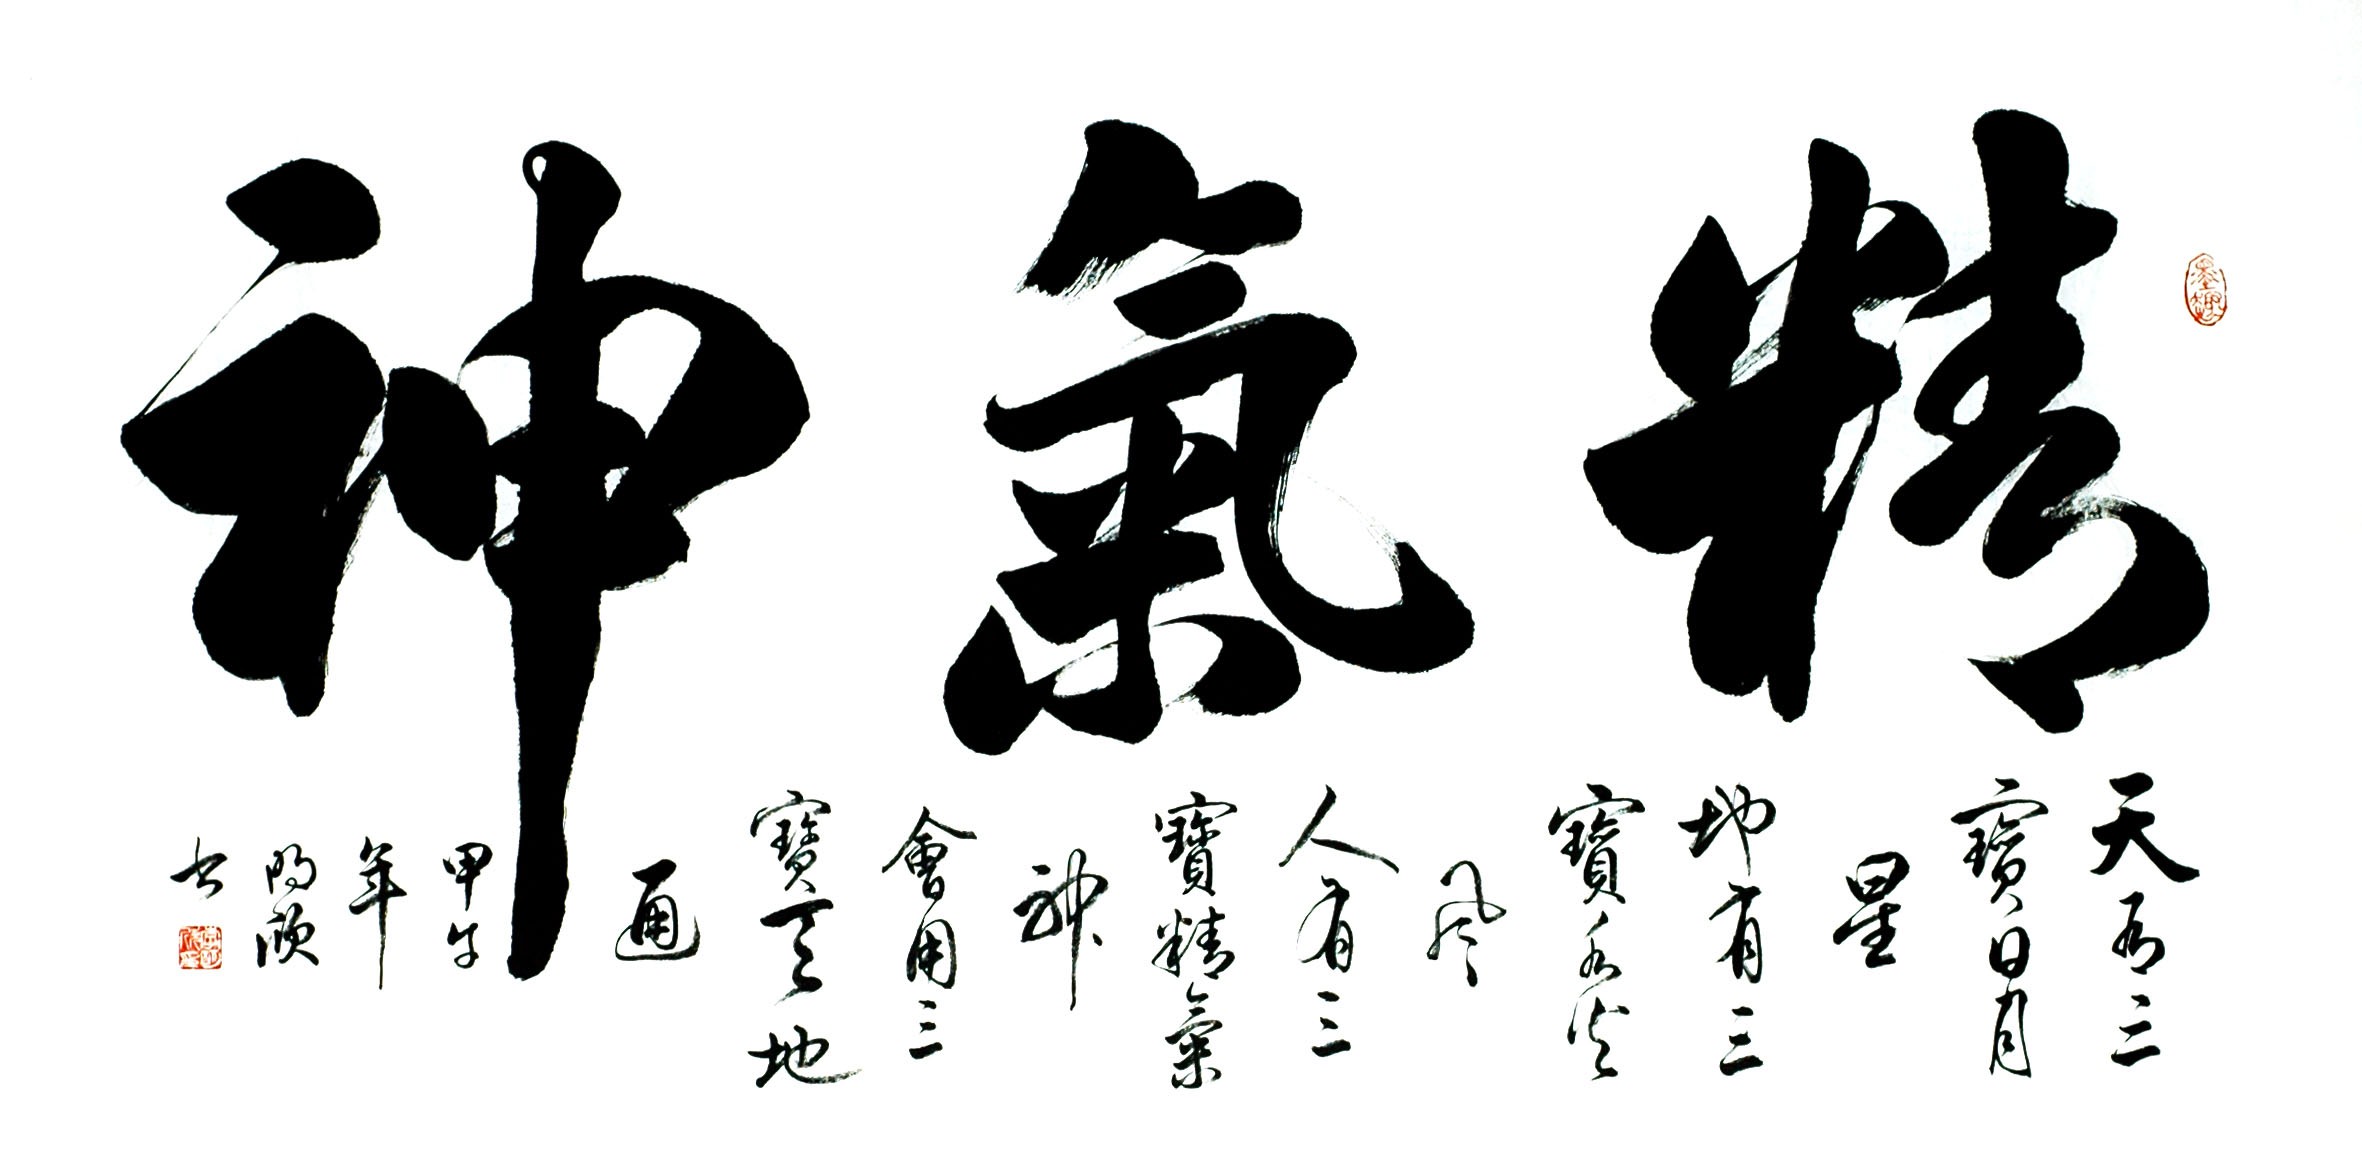 精氣神
天有三
寶日月
星
地有三
寶水火
風
人有三
寶精氣
神
會用三
寶天地
通
甲午
年
書